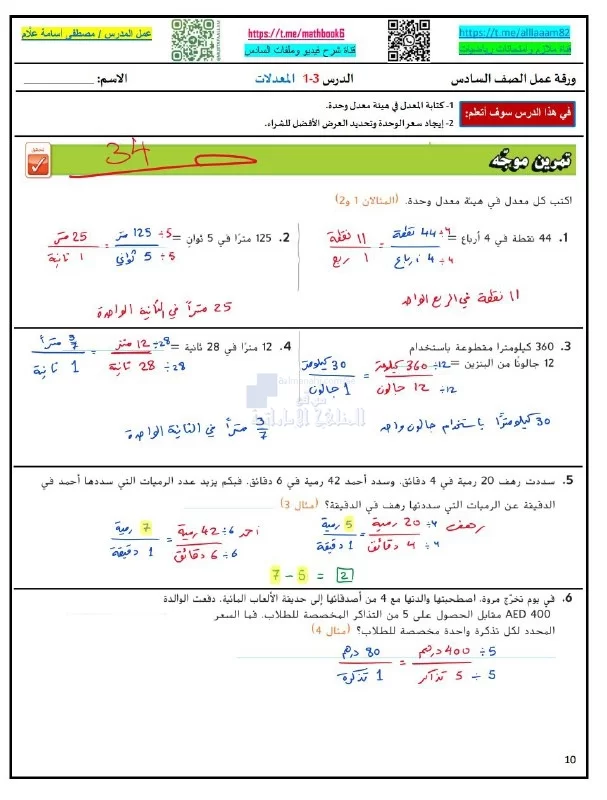 https://t.me/alllaaam82
قناة ملازم وامتحانات رياضيات
https://t.me/mathbook6
قناة شرح فيديو وملفات السادس
عمل المدرس / مصطفى اسامة علّام
ورقة عمل الصف السادس
الدرس 3-1 المعدلات
الاسم:
في هذا الدرس سوف أتعلم:
1- كتابة المعدل في هيئة معدل وحدة.
2- إيجاد سعر الوحدة وتحديد العرض الأفضل للشراء.
تمرين موجّه
34
اكتب كل معدل في هيئة معدل وحدة. (المثالان 1 و2)
1. 44 نقطة في 4 أرباع = 44 نقطة ÷4 / 4 أرباع ÷4 = 11 نقطة / 1 ربع
11 نقطة في الربع الواحد
2. 125 مترًا في 5 ثوانٍ = 125 متر ÷5 / 5 ثواني ÷5 = 25 متر / 1 ثانية
25 مترًا في الثانية الواحدة
3. 360 كيلومترا مقطوعة باستخدام
12 جالونًا من البنزين = 360 كيلومتر ÷12 / 12 جالون ÷12 = 30 كيلومتر / 1 جالون
30 كيلومترًا باستخدام جالون واحد
4. 12 مترًا في 28 ثانية = 12 متر ÷28 / 28 ثانية ÷28 = 3/7 مترًا / 1 ثانية
3/7 مترًا في الثانية الواحدة
almanahj.com/ae
موقع
المناهج الإماراتية
5. سددت رهف 20 رمية في 4 دقائق. وسدد أحمد 42 رمية في 6 دقائق. فبكم يزيد عدد الرميات التي سددها أحمد في
الدقيقة عن الرميات التي سددتها رهف في الدقيقة؟ (مثال 3)
رهف 20 رمية ÷4 / 4 دقائق ÷4 = 5 رمية / 1 دقيقة
احمد 42 رمية ÷6 / 6 دقائق ÷6 = 7 رمية / 1 دقيقة
7 - 5 = 2
6. في يوم تخرّج مروة، اصطحبتها والدتها مع 4 من أصدقائها إلى حديقة الألعاب المائية. دفعت الوالدة
AED 400 مقابل الحصول على 5 من التذاكر المخصصة للطلاب. فما السعر
المحدد لكل تذكرة واحدة مخصصة للطلاب؟ (مثال 4)
400 درهم ÷5 / 5 تذاكر ÷5 = 80 درهم / 1 تذكرة
10